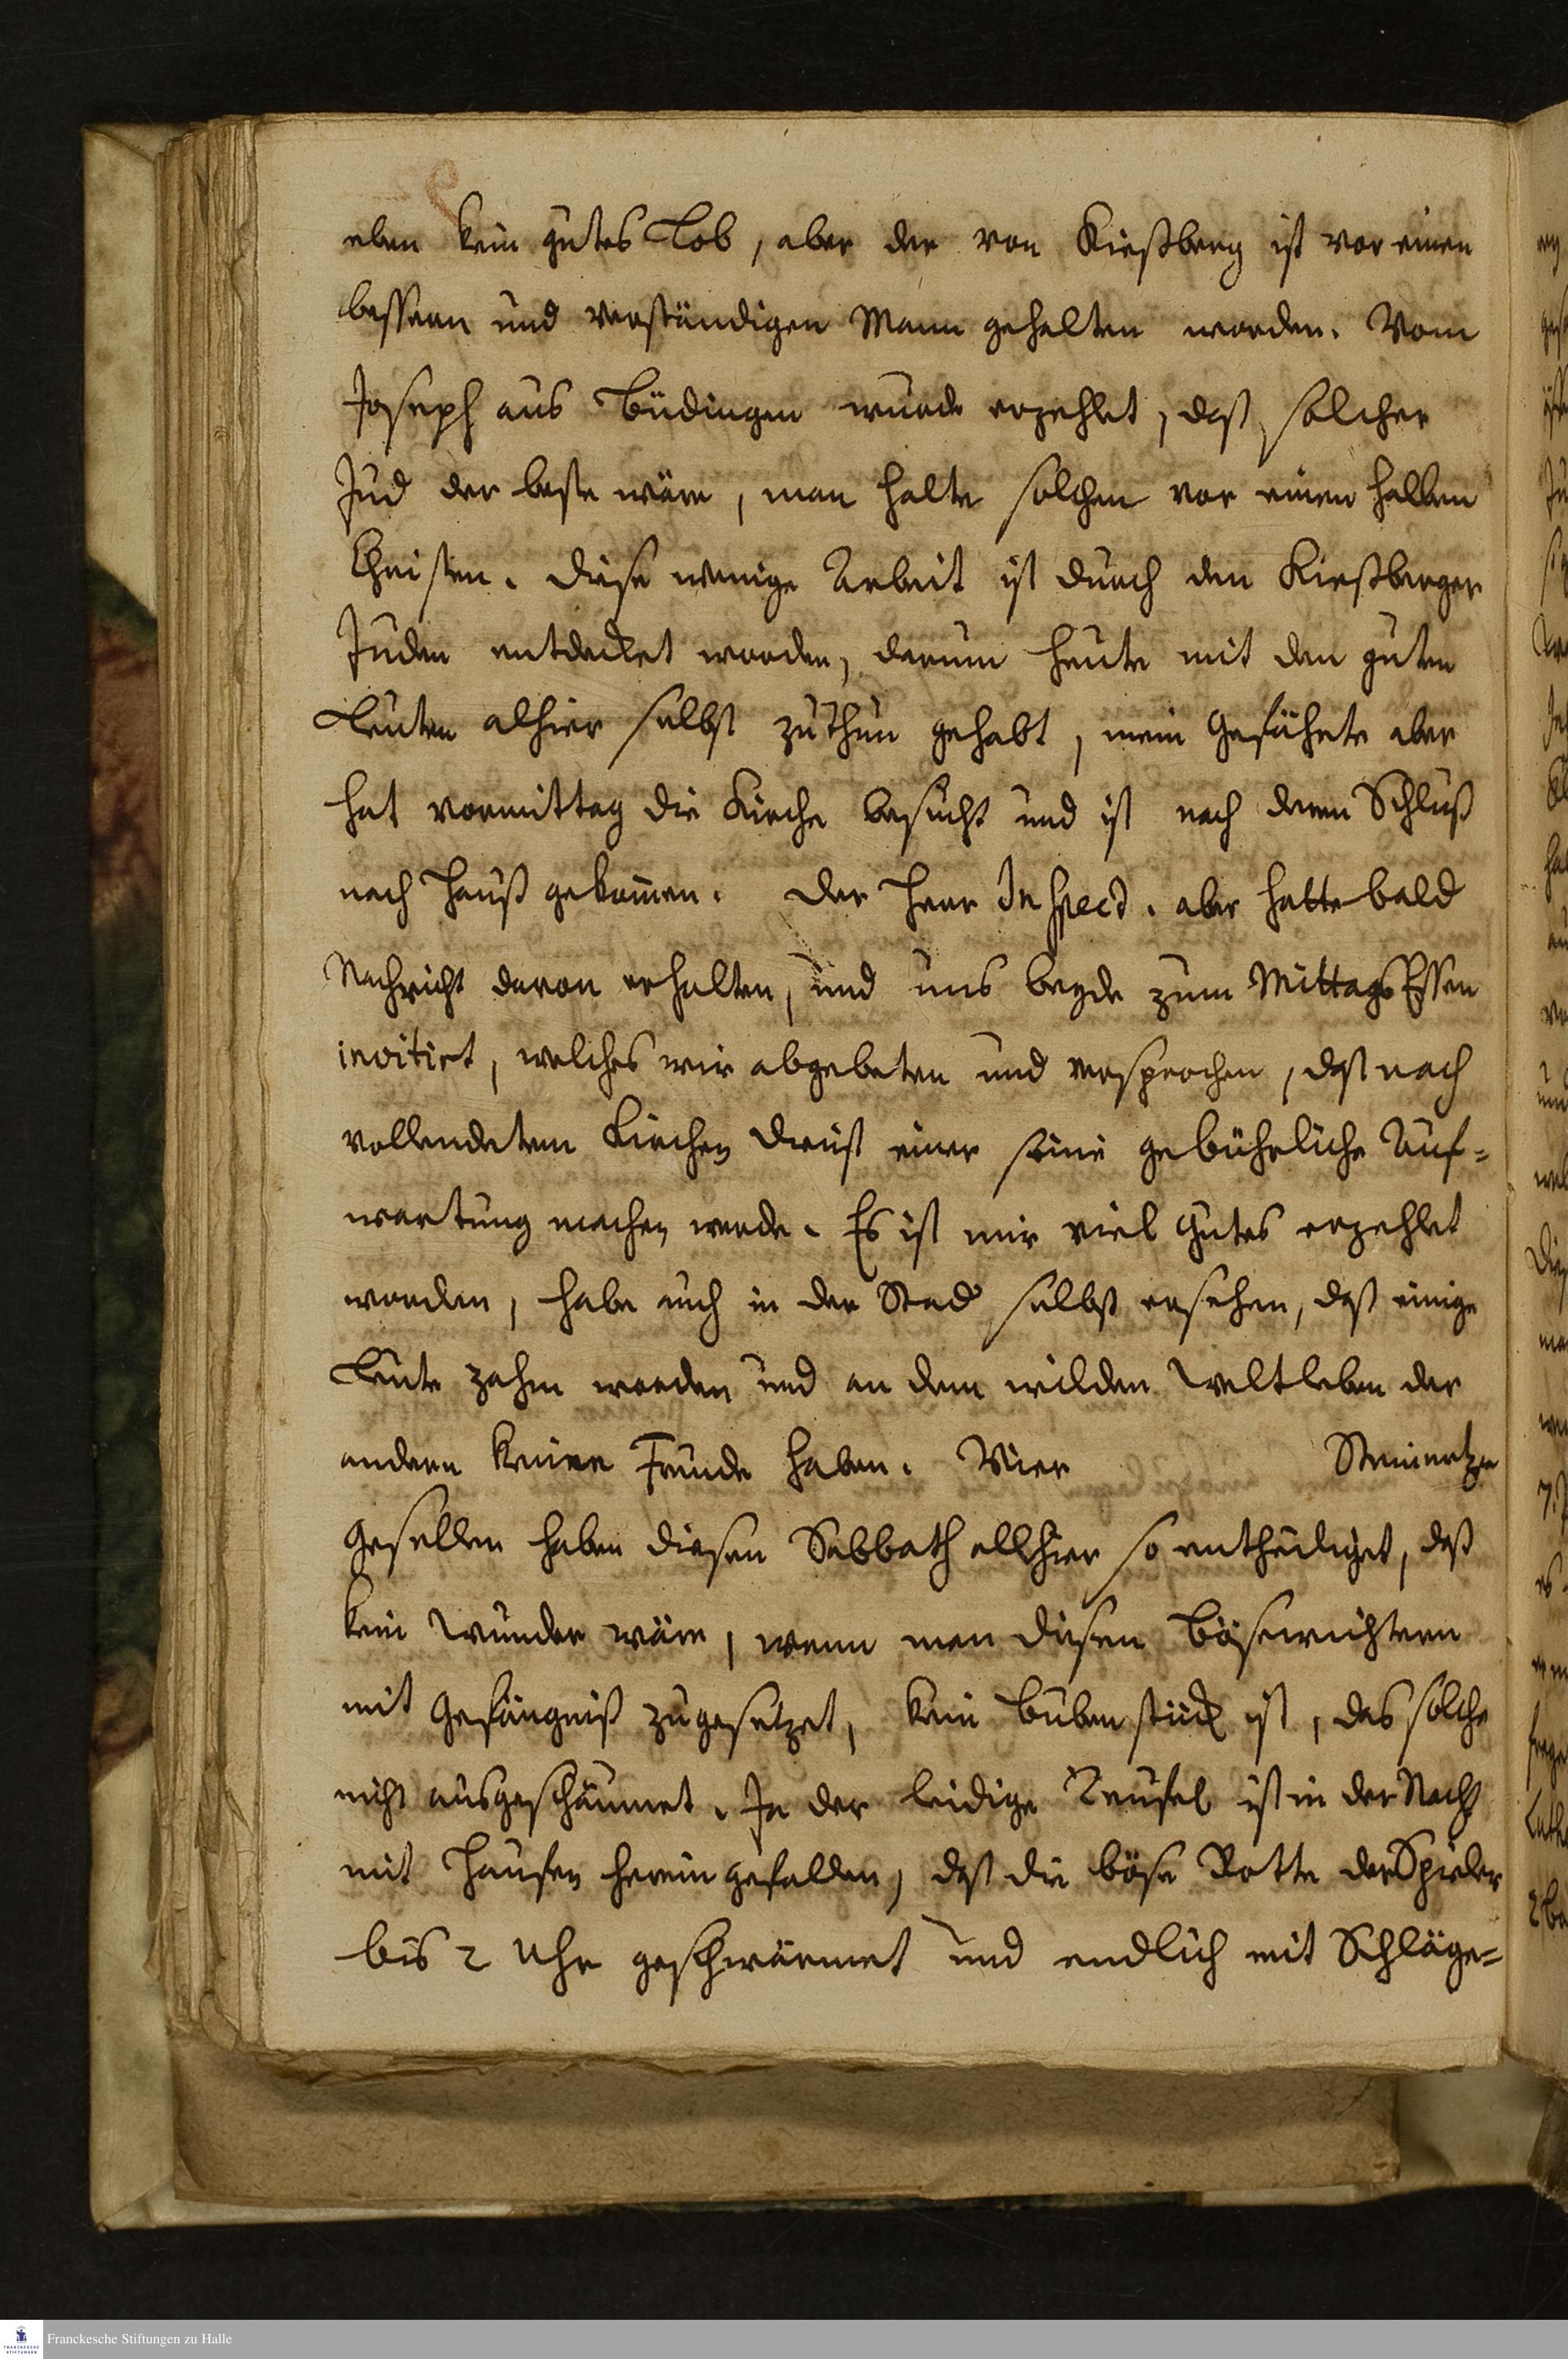 eben kein gutes Lob, aber der von Kirßberg ist vor einen
bessern und verständigen Mann gehalten worden. Vom
Joseph aus Büdingen wurde erzehlet, daß solcher
Jud der beste wäre, man halte solchen vor einen halben
Christen. Diese wenige Arbeit ist durch den Kirßberger
Juden entdecket worden, darum heute mit den guten
Leuten alhier selbst zuthun gehabt, mein Gefährte aber
hat vormittag die Kirche besucht und ist nach deren Schluß
nach Hauß gekom̄en. Der Herr Inspect. aber hatte bald
Nachricht davon erhalten, und uns beyde zum MittagsEssen
invitirt, welches wir abgebeten und versprochen, daß nach
vollendetem Kirchen Dienst einer seine gebührliche Auf=
wartung machen werde. Es ist mir viel Gutes erzehlet
worden, habe auch in der Stad selbst ersehen, daß einige
Leute zahm worden und an dem wilden Weltleben der
andern keine Freude haben. Vier Steinmetzen
Gesellen haben diesen Sabbath allhier so entheiliget, daß
kein Wunder wäre, wenn man diesen Bösewichtern
mit Gefängniß zugesetzet, kein Bubenstück ist, das solche
nicht ausgeschäumet. Ja der leidige Teufel ist in der Nacht
mit Haufen herein gefallen, daß die böse Rotte der Spieler
bis 2 Uhr geschwärmet und endlich mit Schläge=
Franckesche Stiftungen zu Halle